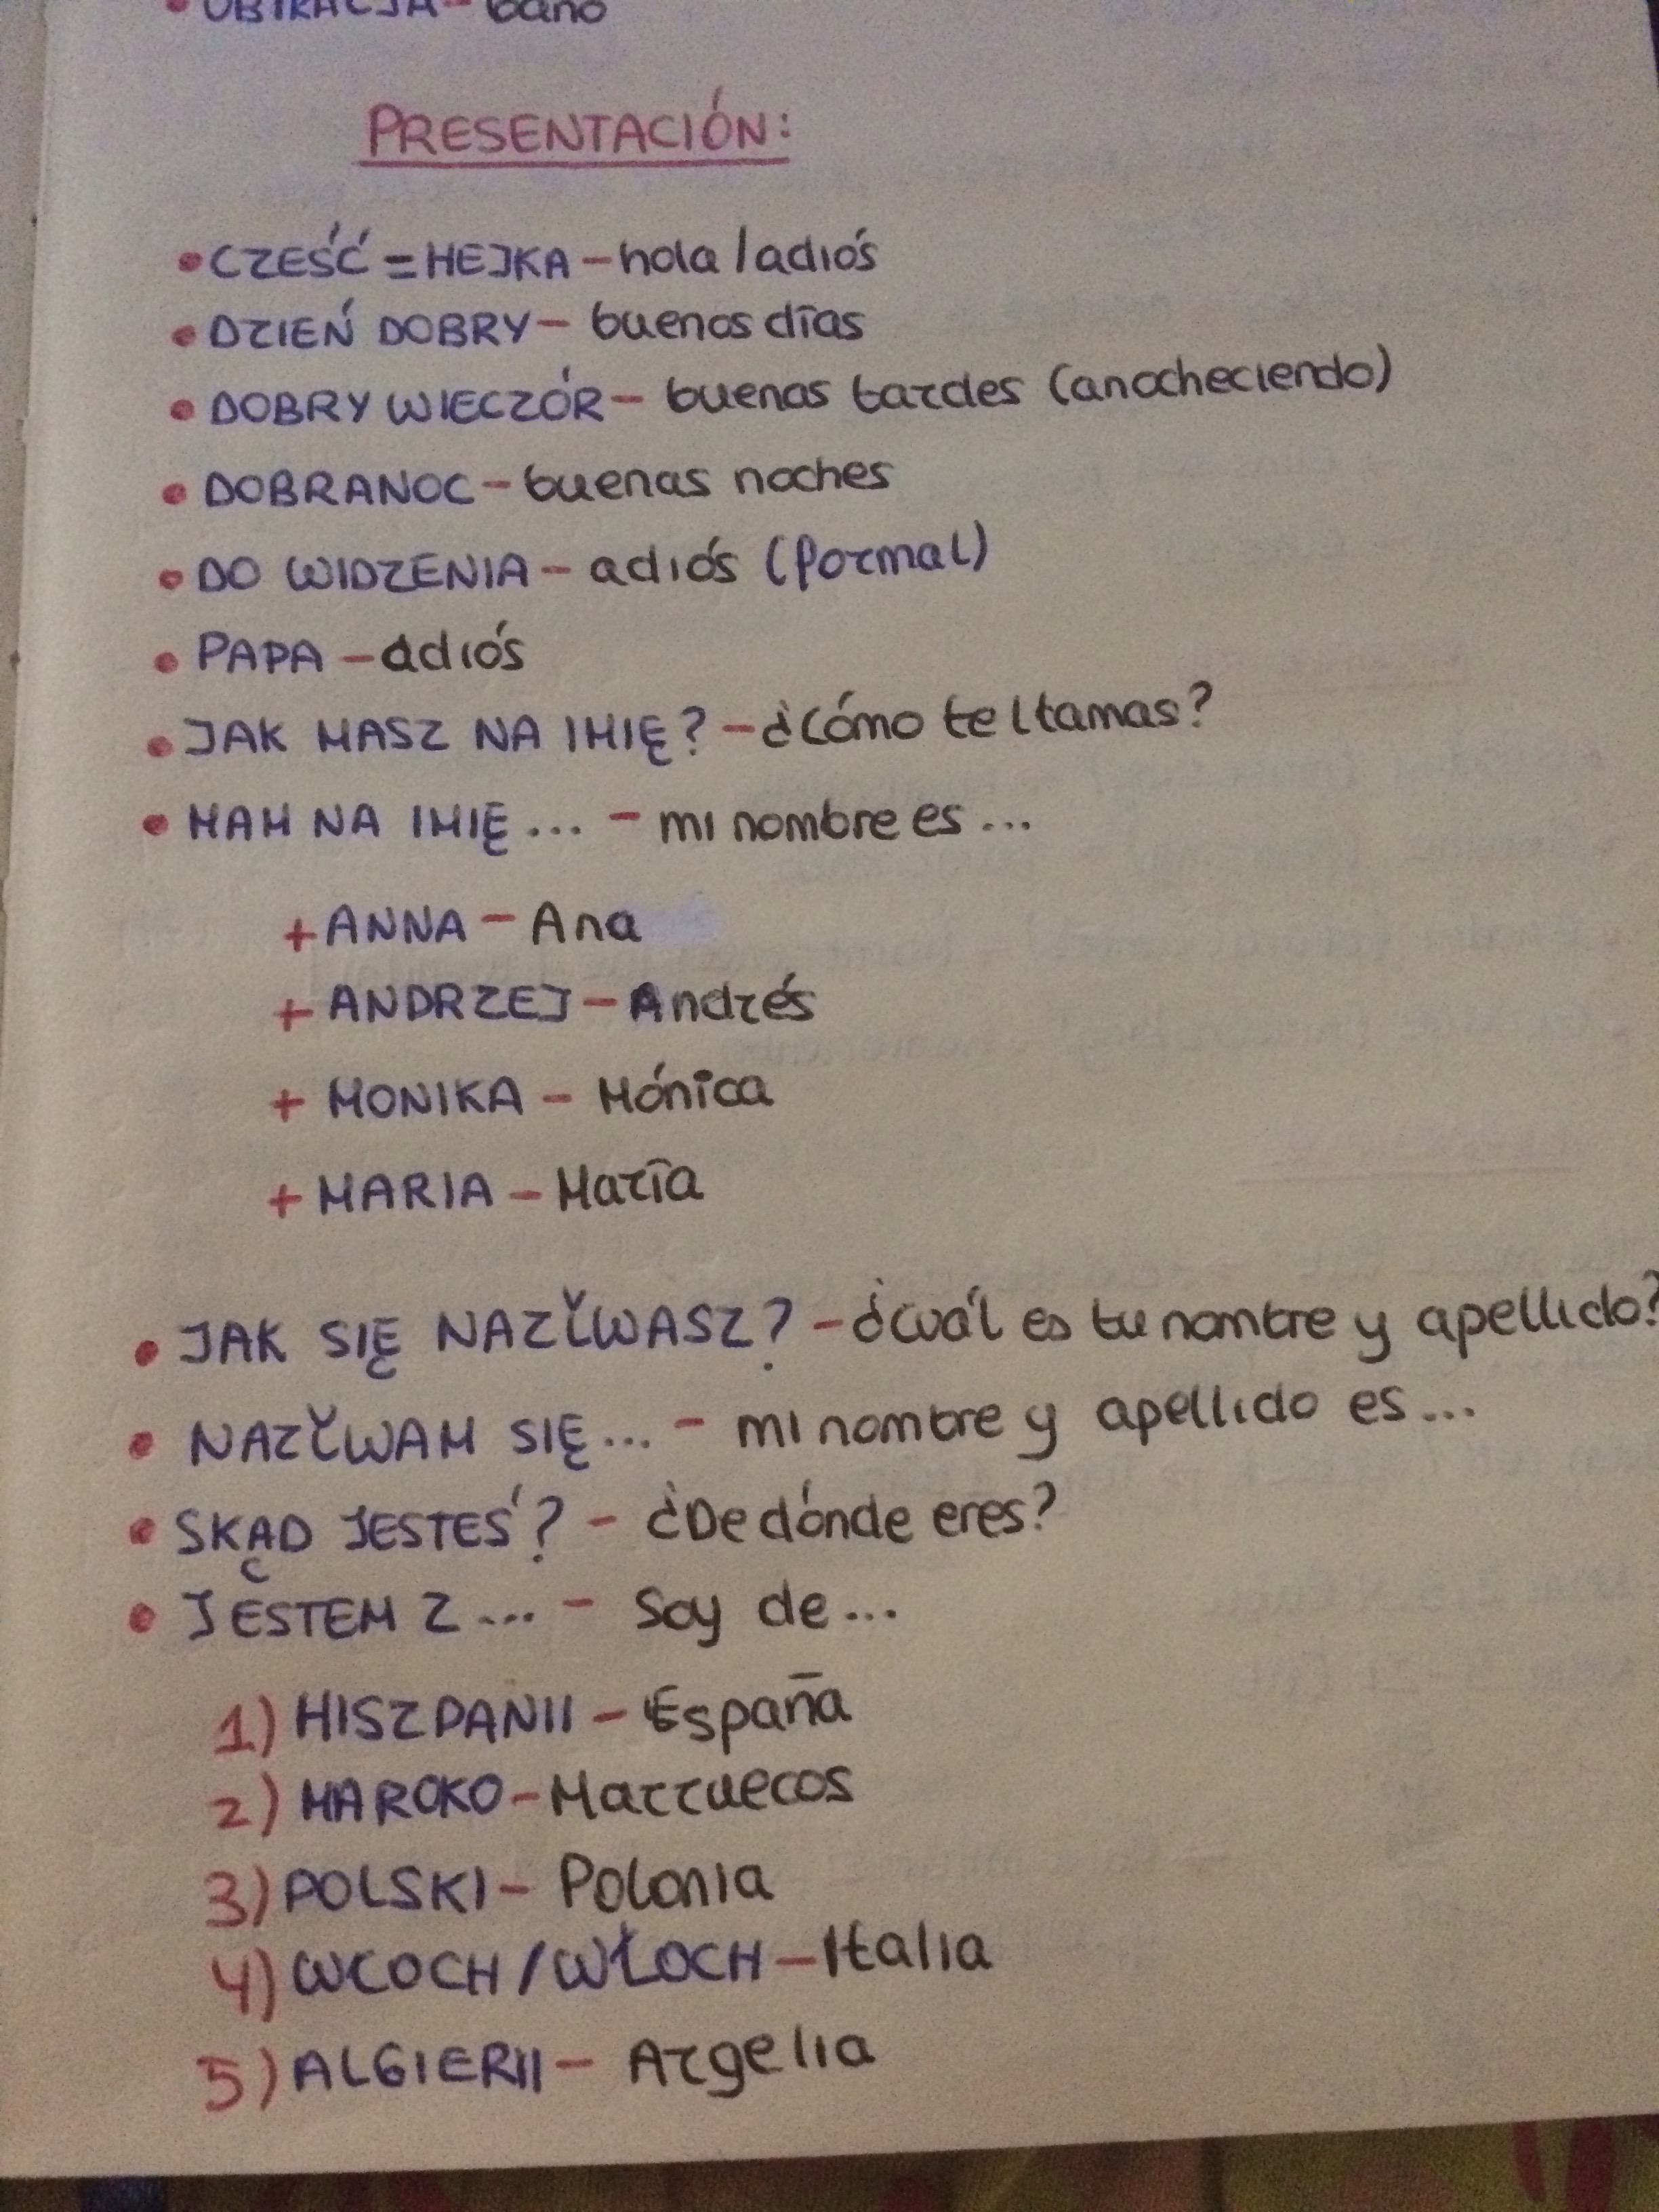 baño
PRESENTACIÓN:
• CZEŚĆ = HEJKA - hola / adiós
• DZIEŃ DOBRY - buenos días
• DOBRY WIECZÓR - buenas tardes (anocheciendo)
• DOBRANOC - buenas noches
• DO WIDZENIA - adiós (formal)
• PAPA - adiós
• JAK MASZ NA IMIĘ? - ¿Cómo te llamas?
• MAM NA IMIĘ... - mi nombre es...
+ ANNA - Ana
+ ANDRZEJ - Andrés
+ MONIKA - Mónica
+ MARIA - María
• JAK SIĘ NAZY̆WASZ? - ¿cuál es tu nombre y apellido?
• NAZY̆WAM SIĘ... - mi nombre y apellido es...
• SKĄD JESTEŚ? - ¿De dónde eres?
• JESTEM Z... - Soy de...
1) HISZPANII - España
2) MAROKO - Marruecos
3) POLSKI - Polonia
4) WLOCH / WŁOCH - Italia
5) ALGIERII - Argelia